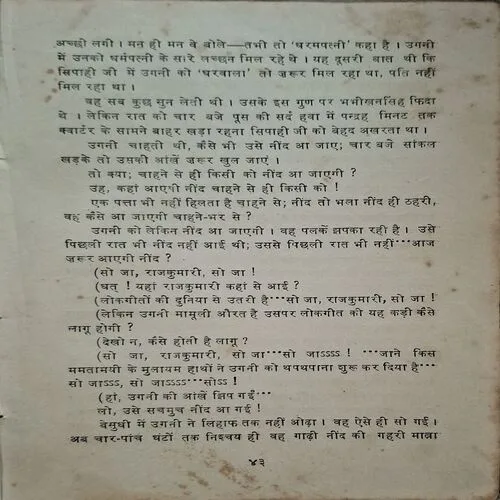 अच्छी लगी । मन ही मन वे बोले—तभी तो 'धरमपत्नी' कहा है । उगनी
में उनको धर्मपत्नी के सारे लच्छन मिल रहे थे । यह दूसरी बात थी कि
सिपाही जी में उगनी को 'घरवाला' तो ज़रूर मिल रहा था, पति नहीं
मिल रहा था ।
वह सब कुछ सुन लेती थी । उसके इस गुण पर भभीखनसिंह फ़िदा
थे । लेकिन रात को चार बजे पूस की सर्द हवा में पन्द्रह मिनट तक
क्वार्टर के सामने बाहर खड़ा रहना सिपाही जी को बेहद अखरता था ।
उगनी चाहती थी, कैसे भी उसे नींद आ जाए; चार बजे सांकल
खड़के तो उसकी आंखें ज़रूर खुल जाएं ।
तो क्या; चाहने से ही किसी को नींद आ जाएगी ?
उंह, कहां आएगी नींद चाहने से ही किसी को !
एक पत्ता भी नहीं हिलता है चाहने से; नींद तो भला नींद ही ठहरी,
वह कैसे आ जाएगी चाहने-भर से ?
उगनी को लेकिन नींद आ जाएगी । वह पलकें झपका रही है । उसे
पिछली रात भी नींद नहीं आई थी; उससे पिछली रात भी नहीं···आज
ज़रूर आएगी नींद ?
(सो जा, राजकुमारी, सो जा !
(धत् ! यहां राजकुमारी कहां से आई ?
(लोकगीतों की दुनिया से उतरी है···सो जा, राजकुमारी, सो जा !
(लेकिन उगनी मामूली औरत है उसपर लोकगीत की यह कड़ी कैसे
लागू होगी ?
(देखो न, कैसे होती है लागू ?
(सो जा, राजकुमारी, सो जा···सो जाऽऽऽऽ ! ···जाने किस
ममतामयी के मुलायम हाथों ने उगनी को थपथपाना शुरू कर दिया है···
सो जाऽऽऽ, सो जाऽऽऽऽ···सोऽऽ !
(हां, उगनी की आंखें झिप गईं···
लो, उसे सचमुच नींद आ गई !
बेसुधी में उगनी ने लिहाफ तक नहीं ओढ़ा । वह ऐसे ही सो गई ।
अब चार-पांच घंटों तक निश्चय ही वह गाढ़ी नींद की गहरी मात्रा
४३